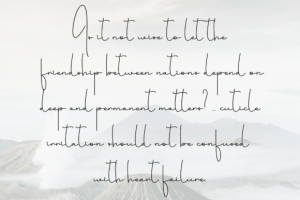 Is it not wise to let the
friendship between nations depend on
deep and permanent matters? .. cuticle
irritation should not be confused
with heart failure.